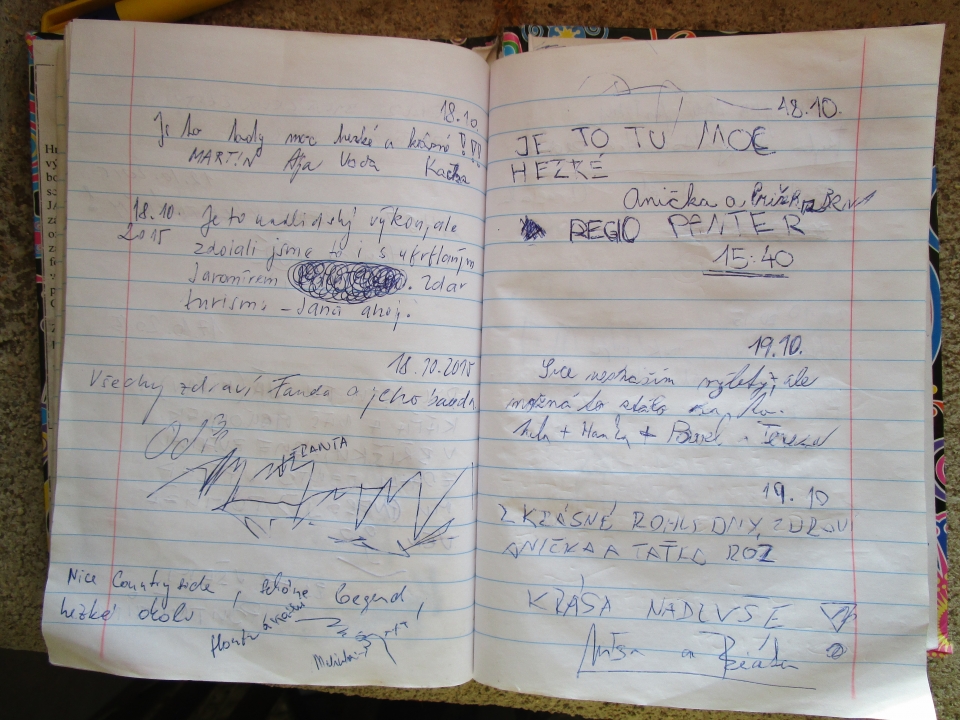 18.10
Je to tady moc hezké a krásné!!!
MARTIN Ája Voda Kačka
18.10. Je to nadlidský výkon, ale
2015 zdolali jsme to i s ukrklaným
Jaromírem . Zdar
turismu - Jana ahoj.
18.10.2015
Všechy zdraví Fanda a jeho banda
Nice Countryside, schöne Gegend,
hezké okolí
18.10.
JE TO TU MOC
HEZKÉ
Anička a
REGIO PANTER
15:40
19.10.
Sice nesnáším výlety, ale
možná to stálo za to.
+ + Tereza
19.10
Z KRÁSNÉ ROHLEDNY ZDRAVÍ
ANIČKA A TAŤKA
KRÁSA NADEVŠE